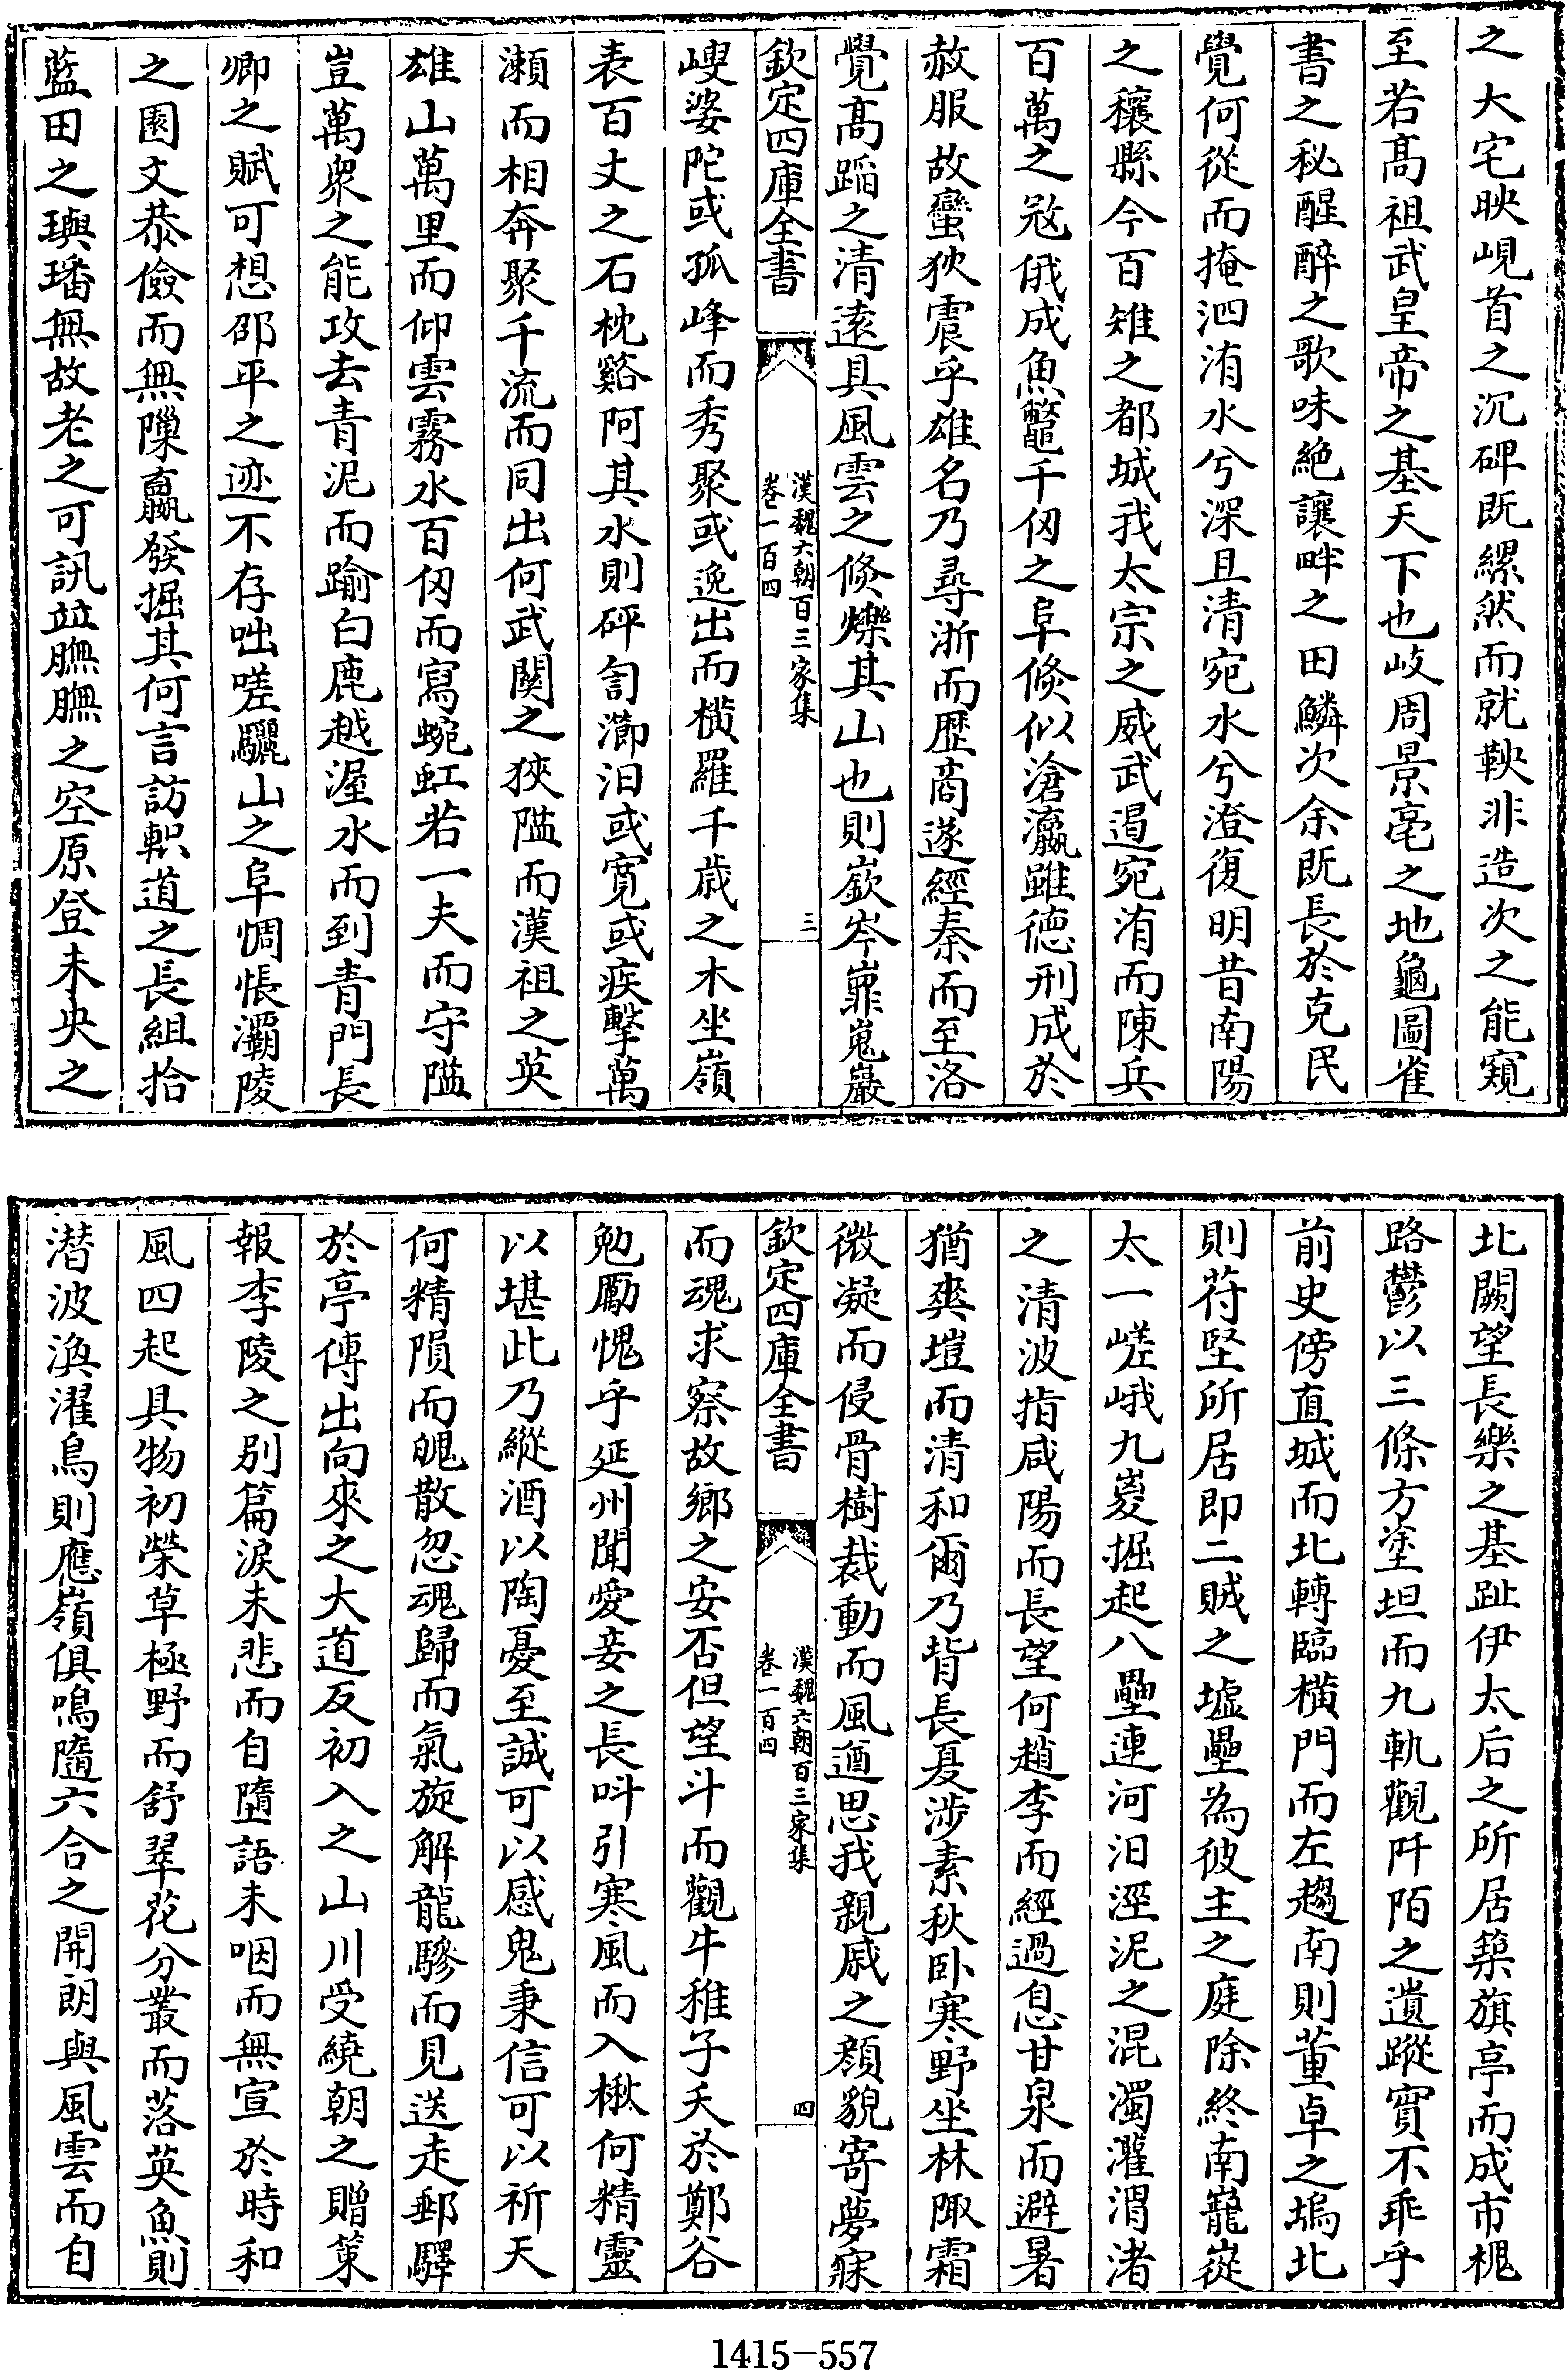 之大宅映峴首之沉碑既縲然而就鞅非造次之能窺
至若髙祖武皇帝之基天下也岐周景亳之地龜圖雀
書之秘醒醉之歌味絶讓畔之田鱗次余既長於克民
覺何從而掩泗洧水兮深且清宛水兮澄復明昔南陽
之穰縣今百雉之都城我太宗之威武遏宛洧而陳兵
百萬之冦俄成魚鼈千仭之阜倐似滄瀛雖徳刑成於
赦服故蠻狄震乎雄名乃尋浙而歴商遂經秦而至洛
覺髙蹈之清逺具風雲之倏爍其山也則嶔岑嶵嵬巖
欽定四庫全書
漢魏六朝百三家集
卷一百四
三
崚嵳陀或孤峰而秀聚或逸出而橫羅千嵗之木坐嶺
表百丈之石枕谿阿其水則砰訇瀄汩或寛或疾擊萬
瀬而相奔聚千流而同出何武闗之狹隘而漢祖之英
雄山萬里而仰雲霧水百仭而寫蜿虹若一夫而守隘
豈萬衆之能攻去青泥而踰白鹿越渥水而到青門長
卿之賦可想邵平之迹不存咄嗟驪山之阜惆悵灞陵
之園文恭儉而無隟嬴發掘其何言訪軹道之長組拾
藍田之璵璠無故老之可訊並膴膴之空原登未央之
北闕望長樂之基趾伊太后之所居築旗亭而成市槐
路鬱以三條方塗坦而九軌觀阡陌之遺蹤實不乖乎
前史傍直城而北轉臨橫門而左趨南則董卓之塢北
則苻堅所居即二賊之墟壘為彼主之庭除終南巃嵸
太一嵯峨九嵏掘起八壘連河汨涇泥之混濁灌渭渚
之清波指咸陽而長望何趙李而經過息甘泉而避暑
猶爽塏而清和爾乃背長夏涉素秋卧寒野坐林陬霜
微凝而侵骨樹裁動而風遒思我親戚之顔貌寄夢寐
欽定四庫全書
漢魏六朝百三家集
卷一百四
四
而魂求察故鄉之安否但望斗而觀牛稚子夭於鄭谷
勉勵愧乎延州聞愛妾之長呌引寒風而入楸何精靈
以堪此乃縱酒以陶憂至誠可以感鬼秉信可以祈天
何精隕而魄散忽魂歸而氣旋解龍驂而見送走郵驛
於亭傳出向來之大道反初入之山川受繞朝之贈策
報李陵之别篇淚未悲而自墮語未咽而無宣於時和
風四起具物初榮草極野而舒翠花分叢而落英魚則
潜波渙濯鳥則應嶺俱鳴隨六合之開朗與風雲而自
1415-557